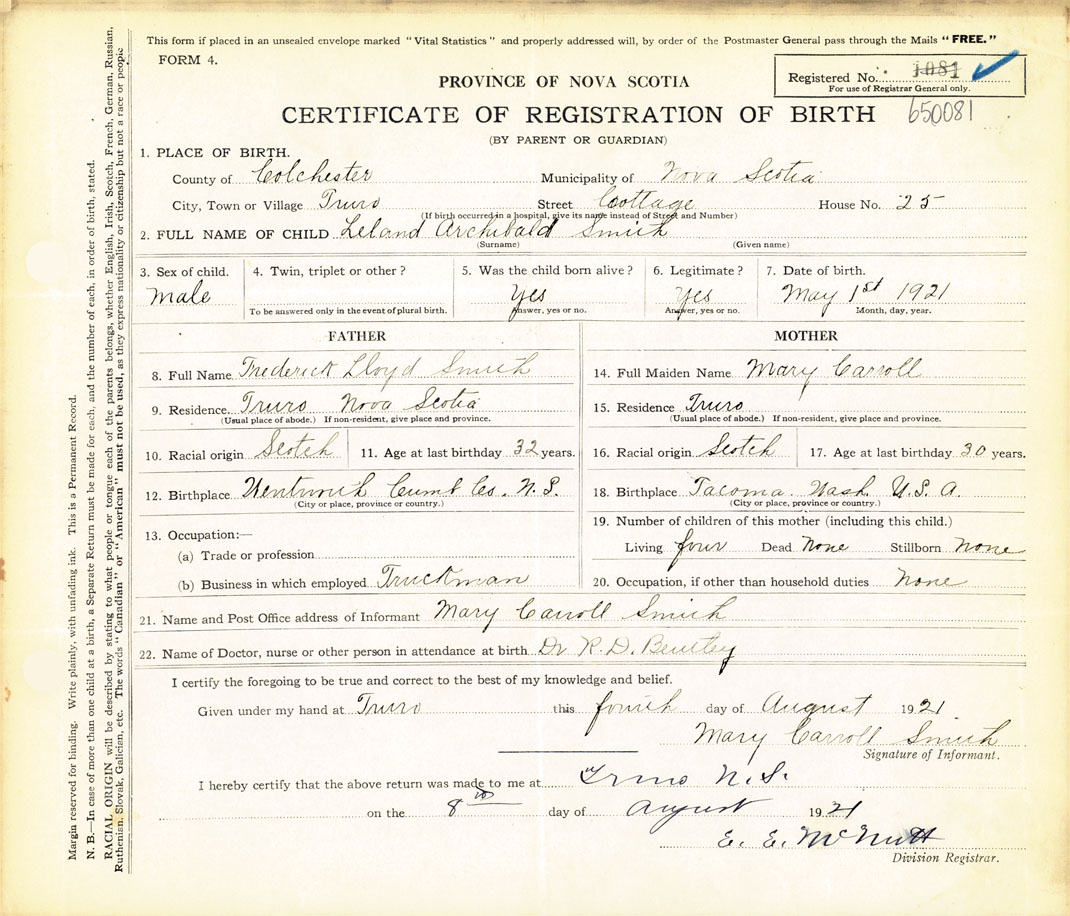 This form if placed in an unsealed envelope marked "Vital Statistics" and properly addressed will, by order of the Postmaster General pass through the Mails "FREE."
FORM 4.
Registered No. 1081
For use of Registrar General only.
650081
PROVINCE OF NOVA SCOTIA
CERTIFICATE OF REGISTRATION OF BIRTH
(BY PARENT OR GUARDIAN)
1. PLACE OF BIRTH.
County of Colchester Municipality of Nova Scotia
City, Town or Village Truro Street Cottage House No. 25
(If birth occurred in a hospital, give its name instead of Street and Number)
2. FULL NAME OF CHILD Leland Archibald Smith
(Surname) (Given name)
3. Sex of child. 4. Twin, triplet or other? 5. Was the child born alive? 6. Legitimate? 7. Date of birth.
Male Yes Yes May 1st 1921
To be answered only in the event of plural birth. Answer, yes or no. Answer, yes or no. Month, day, year.
FATHER
8. Full Name Frederick Lloyd Smith
9. Residence. Truro Nova Scotia
(Usual place of abode.) If non-resident, give place and province.
10. Racial origin Scotch 11. Age at last birthday 32 years.
12. Birthplace Wentworth Cumb Co. N.S.
(City or place, province or country.)
13. Occupation:—
(a) Trade or profession
(b) Business in which employed Truckman
MOTHER
14. Full Maiden Name Mary Carroll
15. Residence Truro
(Usual place of abode.) If non-resident, give place and province.
16. Racial origin Scotch 17. Age at last birthday 30 years.
18. Birthplace Tacoma. Wash U.S.A.
(City or place, province or country.)
19. Number of children of this mother (including this child.)
Living four Dead None Stillborn None
20. Occupation, if other than household duties None
21. Name and Post Office address of Informant Mary Carroll Smith
22. Name of Doctor, nurse or other person in attendance at birth Dr R. D. Bentley
I certify the foregoing to be true and correct to the best of my knowledge and belief.
Given under my hand at Truro this fourth day of August 1921
Mary Carroll Smith
Signature of Informant.
I hereby certify that the above return was made to me at Truro N.S.
on the 8th day of August 1921
E. E. McNutt
Division Registrar.
Margin reserved for binding. Write plainly, with unfading ink. This is a Permanent Record.
N. B.—In case of more than one child at a birth, a Separate Return must be made for each, and the number of each, in order of birth, stated.
RACIAL ORIGIN will be described by stating to what people or tongue each of the parents belongs, whether English, Irish, Scotch, French, German, Russian,
Ruthenian, Slovak, Galician, etc. The words "Canadian" or "American" must not be used, as they express nationality or citizenship but not a race or people